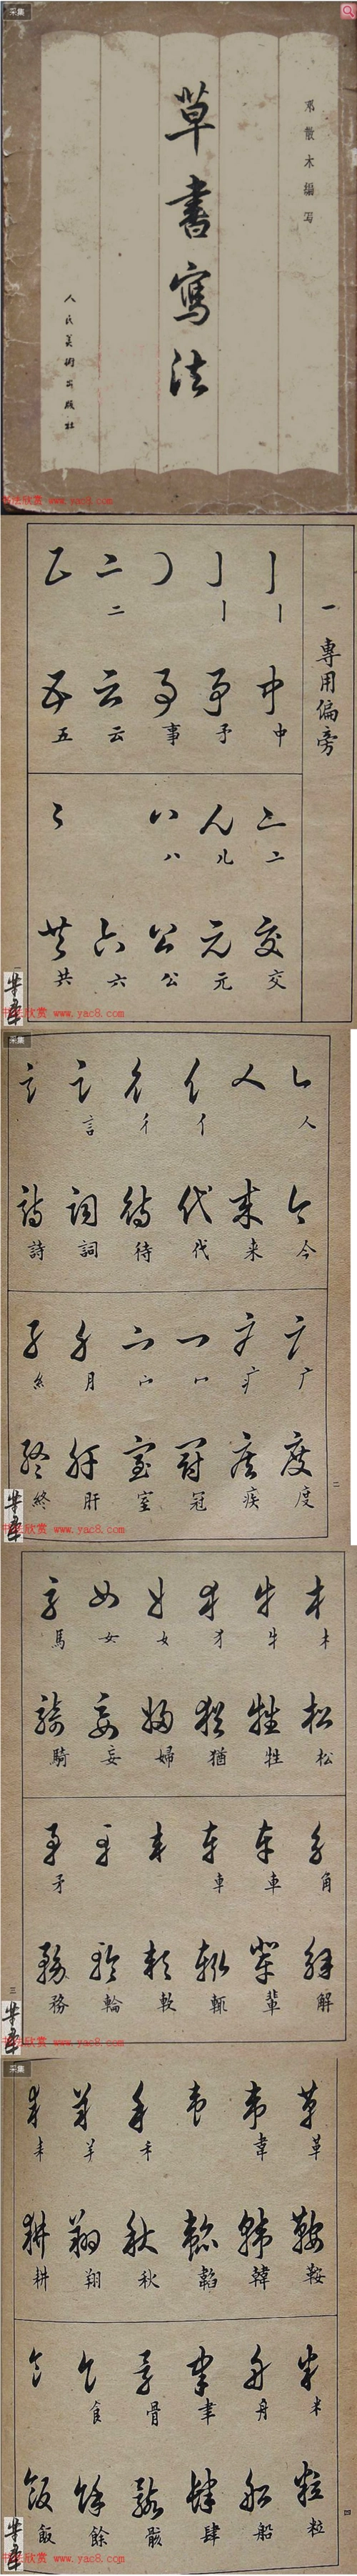 采集
邓散木编写
草書寫法
人民美術出版社
书法欣赏 www.yac8.com
一 專用偏旁
丨 亅 二
中 予 事 云 五
亠 儿 八
交 元 公 六 共
书法欣赏 www.yac8.com
采集
人 亻 彳 言
今 来 代 待 詞 詩
广 疒 冖 宀 月 糸
度 疾 冠 室 肝 終
二
书法欣赏 www.yac8.com
木 牛 犭 女 女 馬
松 牲 猶 婦 妄 騎
角 車 車 矛
解 輩 輒 軟 輪 務
三
书法欣赏 www.yac8.com
采集
革 韋 禾 羊 耒
鞍 韓 韜 秋 翔 耕
米 舟 聿 骨 食
粒 船 肆 骸 餘 飯
四
书法欣赏 www.yac8.com